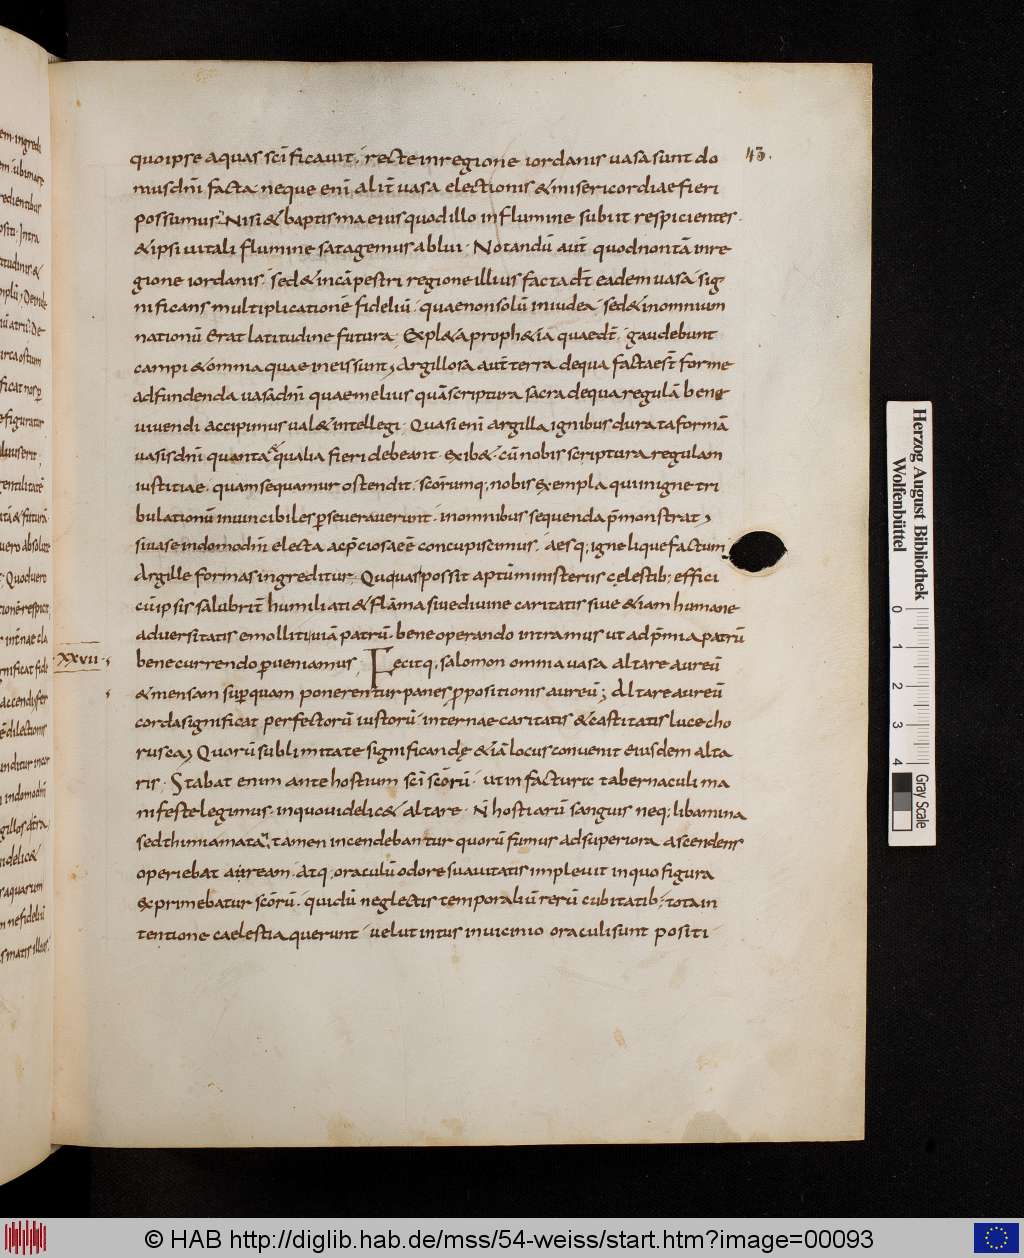 43.
quo ipse aquas scīficavit · recte in regione iordanis vasa sunt do
mus dn̄i facta neque enī alit̄ vasa electionis & misericordiae fieri
possumus · Nisi & baptisma eius quod illo in flumine subiit respicientes ·
& ipsi vitali flumine satagemus ablui · Notandū aut̄ quod non tā in re
gione iordanis · sed & in cāpestri regione illius facta dr̄ eadem vasa · sig
nificans multiplicationē fideliū · quae non solū in iudea · sed & in omnium
nationū erat latitudine futura · Expl&a proph&ia quae dr̄ · gaudebunt
campi & omnia quae in eis sunt; Argillosa aut̄ terra de qua factae st̄ forme
ad fundenda vasa dn̄i quae melius quā scriptura sacra de qua regulā bene
vivendi accipimus val& intellegi · Quasi enī argilla ignibus durata formā
vasis dn̄i quanta & qualia fieri debeant · exib& · cū nobis scriptura regulam
iustitiae · quam sequamur ostendit · scōrumq; nobis exempla qui in igne tri
bulationū invincibiles p̱severaverunt · in omnibus sequenda p̄monstrat;
si vase in domo dn̄i electa ac p̄ciosa eē concupiscimus · aesq; igne liquefactum
Argille formas ingreditur ·
cū ipsis salubrit̄ humiliati & flāma sive divine caritatis sive & iam humane
adversitatis emolliti viā patrū · bene operando intramus ut ad p̄mia patrū
xxvii ·
bene currendo p̱veniamus; Fecitq; salomon omnia vasa altare aureū
& mensam sup̱ quam ponerentur panes p̱positionis aureū; Altare aureū
corda significat perfectorū iustorū internae caritatis & castitatis luce cho
rusca; Quorū sublimitate significandę & iā locus convenit eiusdem alta
ris · Stabat enim ante hostium scī scōrū · ut in facture tabernaculi ma
nifeste legimus · in quo videlic& altare · N̄ hostiarū sanguis neq; libamina
sed thimiamata tamen incendebantur quorū fumus ad superiora ascendens
operiebat auream · Atq; oraculū odore suavitatis implevit in quo figura
exprimebatur scōrū · qui dū neglectis temporaliū rerū cubitatib; tota in
tentione caelestia querunt · velut intus in vicinio oraculi sunt positi
Herzog August Bibliothek
Wolfenbüttel
0 1 2 3 4
Gray Scale
© HAB http://diglib.hab.de/mss/54-weiss/start.htm?image=00093